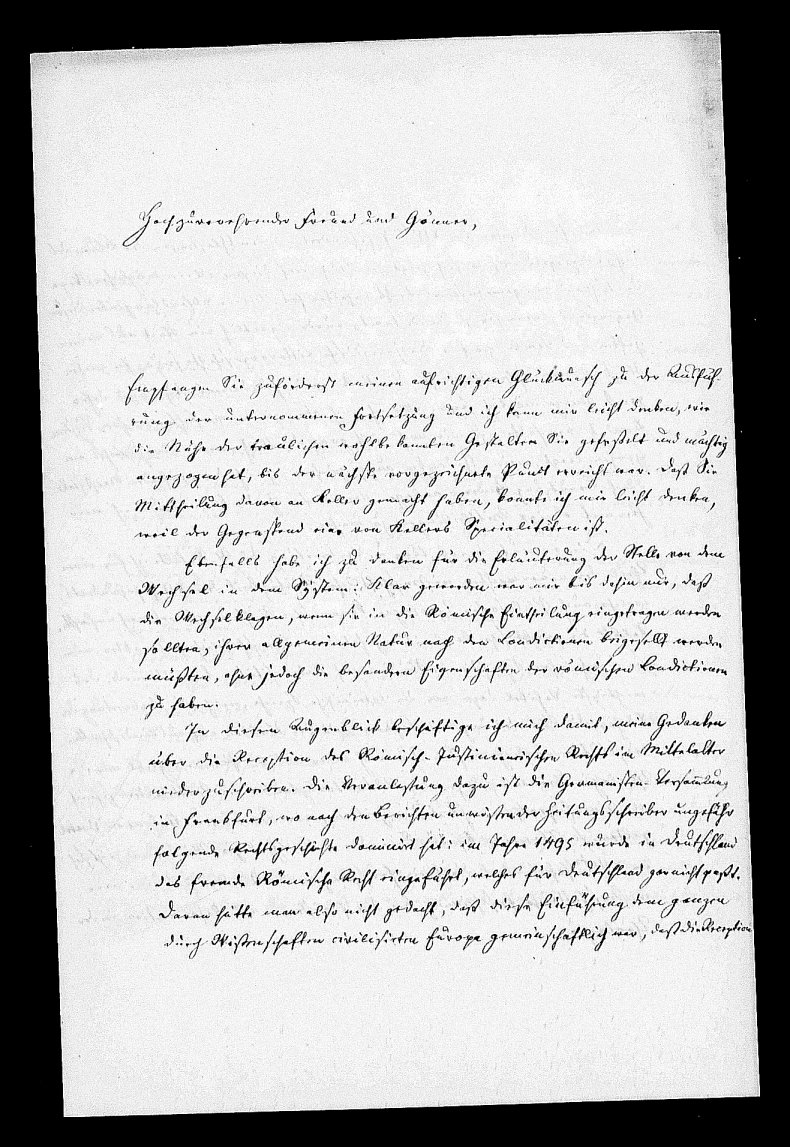 Hochzuverehrender Freund und Gönner,
Empfangen Sie zuförderst meinen aufrichtigen Glückwunsch zu der Ausfüh-
rung der unternommenen Fortsetzung und ich kann mir leicht denken, wie
die Nähe der traulichen wohlbekannten Gestalten Sie gefesselt und mächtig
angezogen hat, bis der nächste vorgezeichnete Punct erreicht war. Daß Sie
Mittheilung davon an Keller gemacht haben, konnte ich mir leicht denken,
weil der Gegenstand eine von Kellers Specialitäten ist.
Ebenfalls habe ich zu danken für die Erläuterung der Stelle von dem
Wechsel in dem System. Klar geworden war mir bis dahin nur, daß
die Wechselklagen, wenn sie in die Römische Eintheilung eingetragen werden
sollten, ihrer allgemeinen Natur nach den Condictionen beigesellt werden
müßten, ohne jedoch die besondern Eigenschaften der römischen Condictionen
zu haben.
In diesem Augenblick beschäftige ich mich damit, meine Gedanken
über die Reception des Römisch-Justinianischen Rechts im Mittelalter
niederzuschreiben. Die Veranlassung dazu ist die Germanisten-Versammlung
in Frankfurt, wo nach den Berichten unwissender Zeitungsschreiber ungefähr
folgende Rechtsgeschichte dominirt hat: im Jahre 1495 wurde in Deutschland
das fremde Römische Recht eingeführt, welches für Deutschland gar nicht paßt.
Daran hätte man also nicht gedacht, daß diese Einführung dem ganzen
durch Wissenschaften civilisirten Europa gemeinschaftlich war, daß die Reception